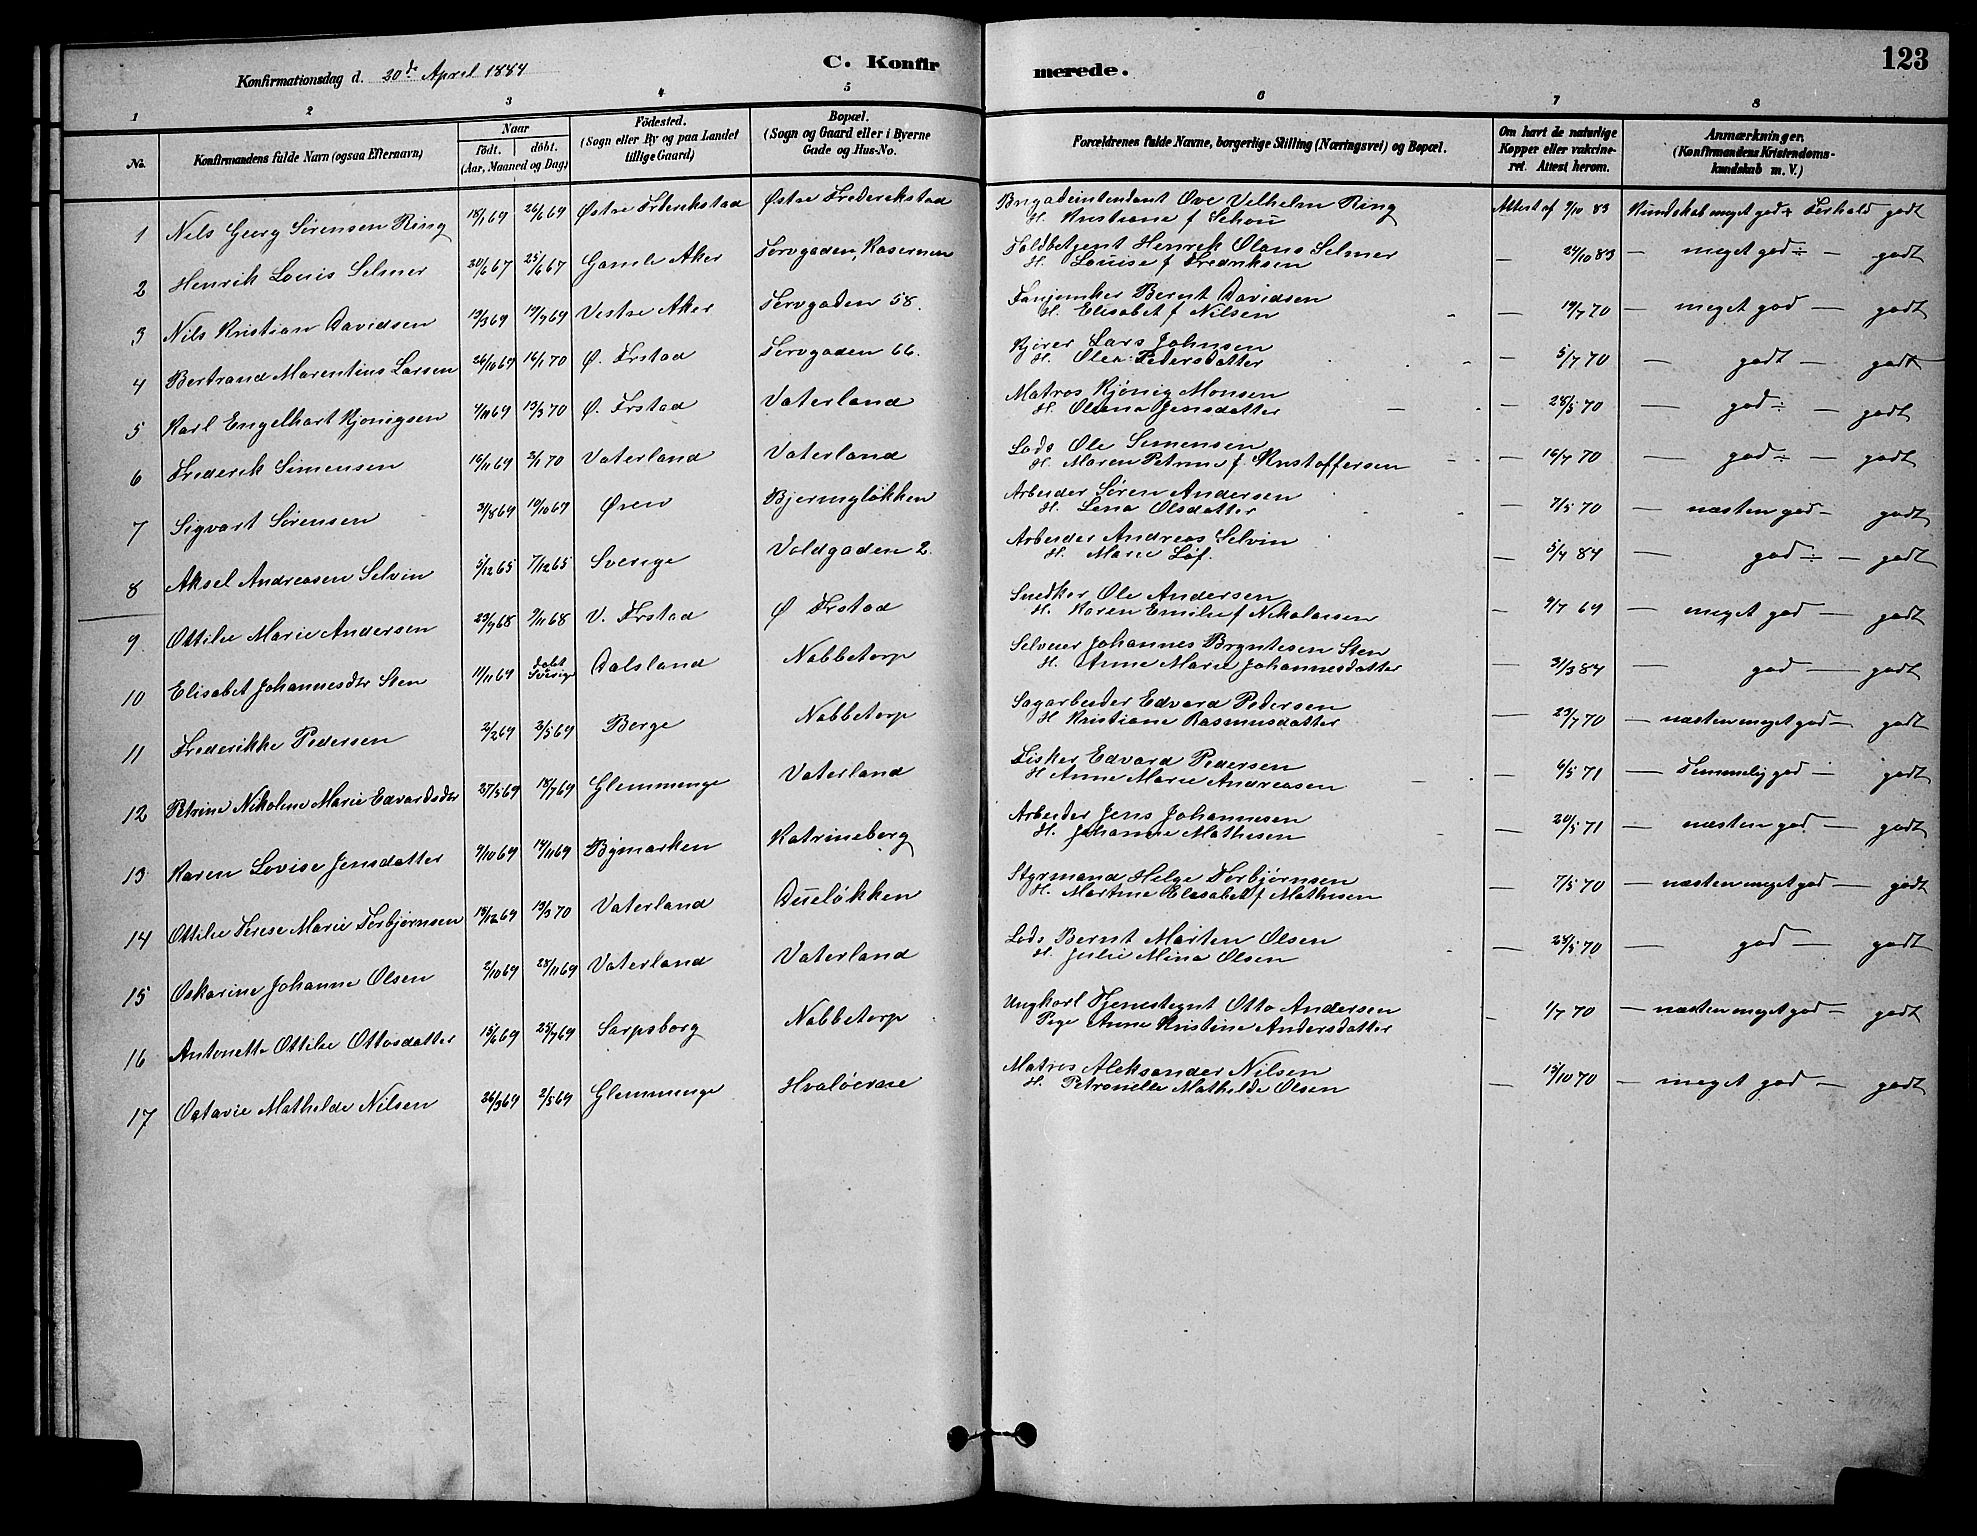 123
Konfirmationsdag d. 20de April 1884
C. Konfirmerede.
1 2 3 4 5 6 7 8
No. Konfirmandens fulde Navn (ogsaa Efternavn) Naar födt. döbt. (Aar, Maaned og Dag) Födested. (Sogn eller By og paa Landet tillige Gaard) Bopæl. (Sogn og Gaard eller i Byerne Gade og Hus-No. Forældrenes fulde Navne, borgerlige Stilling (Næringsvei) og Bopæl. Om havt de naturlige Kopper eller vakcineret. Attest herom. Anmærkninger. (Konfirmandens Kristendomskundskab m. V.)
1 Nils Georg Sörensen Ring 18/1 69 26/6 69 Østre Frederikstad Østre Frederikstad Brigadeintendant Ove Vilhelm Ring
H. Kristiane f Schou Attest af 9/10 83 Kundskab meget god ÷ Forhold godt
2 Henrik Louis Selmer 20/6 67 25/6 67 Gamle Aker Torvgaden, Kasernen Toldbetjent Henrik Olaus Selmer
H. Louise f Fredriksen — 24/10 83 — meget god ÷ — godt
3 Nils Kristian Davidsen 13/3 69 19/9 69 Vestre Aker Torvgaden 58. Fanjunker Bernt Davidsen
H. Elisabet f Nilsen — 19/7 70 — meget god — godt
4 Bertrand Marentius Larsen 26/10 69 16/1 70 Ø. Frstad Torvgaden 66. Kjører Lars Johnsen
H. Olea Pedersdatter — 5/7 70 — godt — godt
5 Karl Engelhart Kjönigsen 4/11 69 13/3 70 Ø. Frstad Vaterland Matros Kjönig Monsen
H. Oleana Jensdatter — 28/5 70 — god ÷ — godt
6 Frederik Simensen 16/11 69 2/1 70 Vaterland Vaterland Lods Ole Simensen
H. Maren Petrine f. Kristoffersen — 16/7 70 — god ÷ — godt
7 Sigvart Sörensen 31/8 69 10/10 69 Øren Bjerringløkken Arbeider Sören Andersen
H. Lena Olsdatter — 7/5 70 — næsten god — godt
8 Aksel Andreasen Selvin 5/12 65 7/12 65 Sverige Voldgaden 2. Arbeider Andreas Selvin
H. Marie Löf. — 5/4 84 — god ÷ — godt
9 Ottilie Marie Andersen 23/9 68 9/11 68 V. Frstad Ø Frstad Snedker Ole Andersen
H. Karen Emilie f Nikolaisen — 9/7 69 — meget god — godt
10 Elisabet Johannesdtr Sten 11/11 69 Döbt Sverige Dalsland Nabbetorp Selveier Johannes Bryntesen Sten
H. Anne Marie Johannesdatter — 31/3 84 — god — godt
11 Frederikke Pedersen 2/2 69 2/5 69 Borge Nabbetorp Sagarbeider Edvard Pedersen
H Kristiane Rasmusdatter — 23/7 70 — næsten meget god — godt
12 Petrine Nikoline Marie Edvardsdtr 27/5 69 18/7 69 Glemminge Vaterland Fisker Edvard Pedersen
H Anne Marie Andreasen — 6/5 71 — Temmelig god — godt
13 Karen Lovise Jensdatter 9/10 69 14/11 69 Bymarken Katrineborg Arbeider Jens Johannesen
H. Johanne Mathisen — 20/5 71 — næsten god — godt
14 Ottilie Terese Marie Torbjörnsen 18/12 69 13/3 70 Vaterland Dueløkken Styrmand Helge Torbjörnsen
H. Martine Elisabet f Mathisen — 7/5 70 — næsten meget god — godt
15 Oskarine Johanne Olsen 2/10 69 28/11 69 Vaterland Vaterland Lods Bernt Marten Olsen
H. Julie Mina Olsen — 24/5 70 — god — godt
16 Antonette Ottilie Ottosdatter 15/6 69 25/7 69 Sarpsborg Nabbetorp Ungkarl Tjenestegut Otto Andersen
Pige Anne Kristine Andersdatter — 1/7 70 — næsten meget god — godt
17 Octavie Mathilde Nilsen 26/3 69 2/5 69 Glemminge Hvaløerne Matros Aleksander Nilsen
H. Petronelle Mathilde Olsen — 15/10 70 — meget god — godt